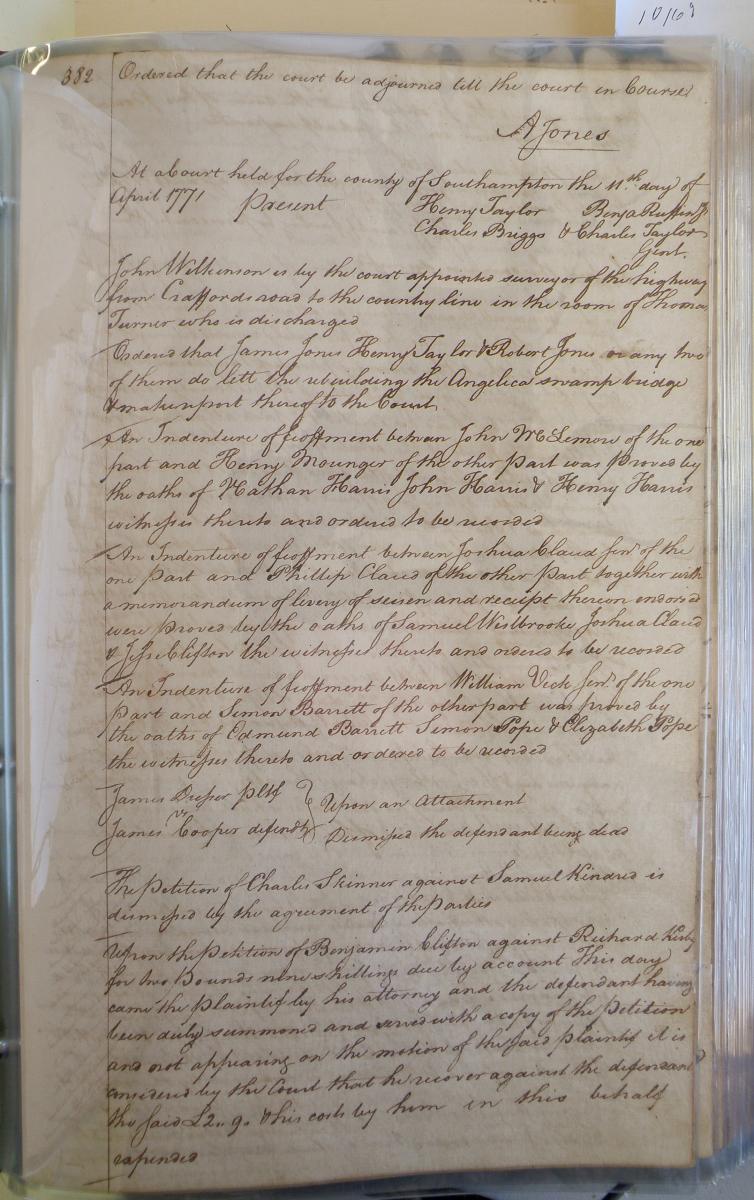 10/68
382 Ordered that the court be adjourned till the court in Course
A Jones
At a Court held for the county of Southampton the 11th day of
April 1771 Present Henry Taylor Benja Ruffin Jr
Charles Briggs & Charles Taylor
Gent.
John Wilkinson is by the court appointed surveyor of the highway
from Craffords road to the county line in the room of Thomas
Turner who is discharged
Ordered that James Jones Henry Taylor & Robert Jones or any two
of them do lett the rebuilding the Angelica swamp bridge
& make report thereof to the Court
An Indenture of feoffment between John McLemore of the one
part and Henry Mounger of the other Part was Proved by
the oaths of Nathan Harris John Harris & Henry Harris
witnesses thereto and ordered to be recorded
An Indenture of feoffment between Joshua Claud Senr. of the
one Part and Phillip Claud of the other Part together with
a memorandum of livery of seisen and receipt thereon endorsed
were Proved by the oaths of Samuel Westbrooke Joshua Claud
& Jesse Clifton the witnesses thereto and ordered to be recorded
An Indenture of feoffment between William Vick Senr. of the one
Part and Simon Barrett of the other part was proved by
the oaths of Edmund Barrett Simon Pope & Elizabeth Pope
the witnesses thereto and ordered to be recorded
James Dresser Pltf } Upon an Attachment
vs
James Cooper defendt } Dismissed the defendant being dead
The Petition of Charles Skinner against Samuel Kindred is
dismissed by the agreement of the Parties
Upon the Petition of Benjamin Clifton against Richard Kirby
for two Pounds nine shillings due by account This day
came the Plaintif by his attorney and the defendant having
been duly summoned and served with a copy of the Petition
and not appearing on the motion of the said plaintif it is
considered by the Court that he recover against the defendant
the said £2..9. & his costs by him in this behalf
expended